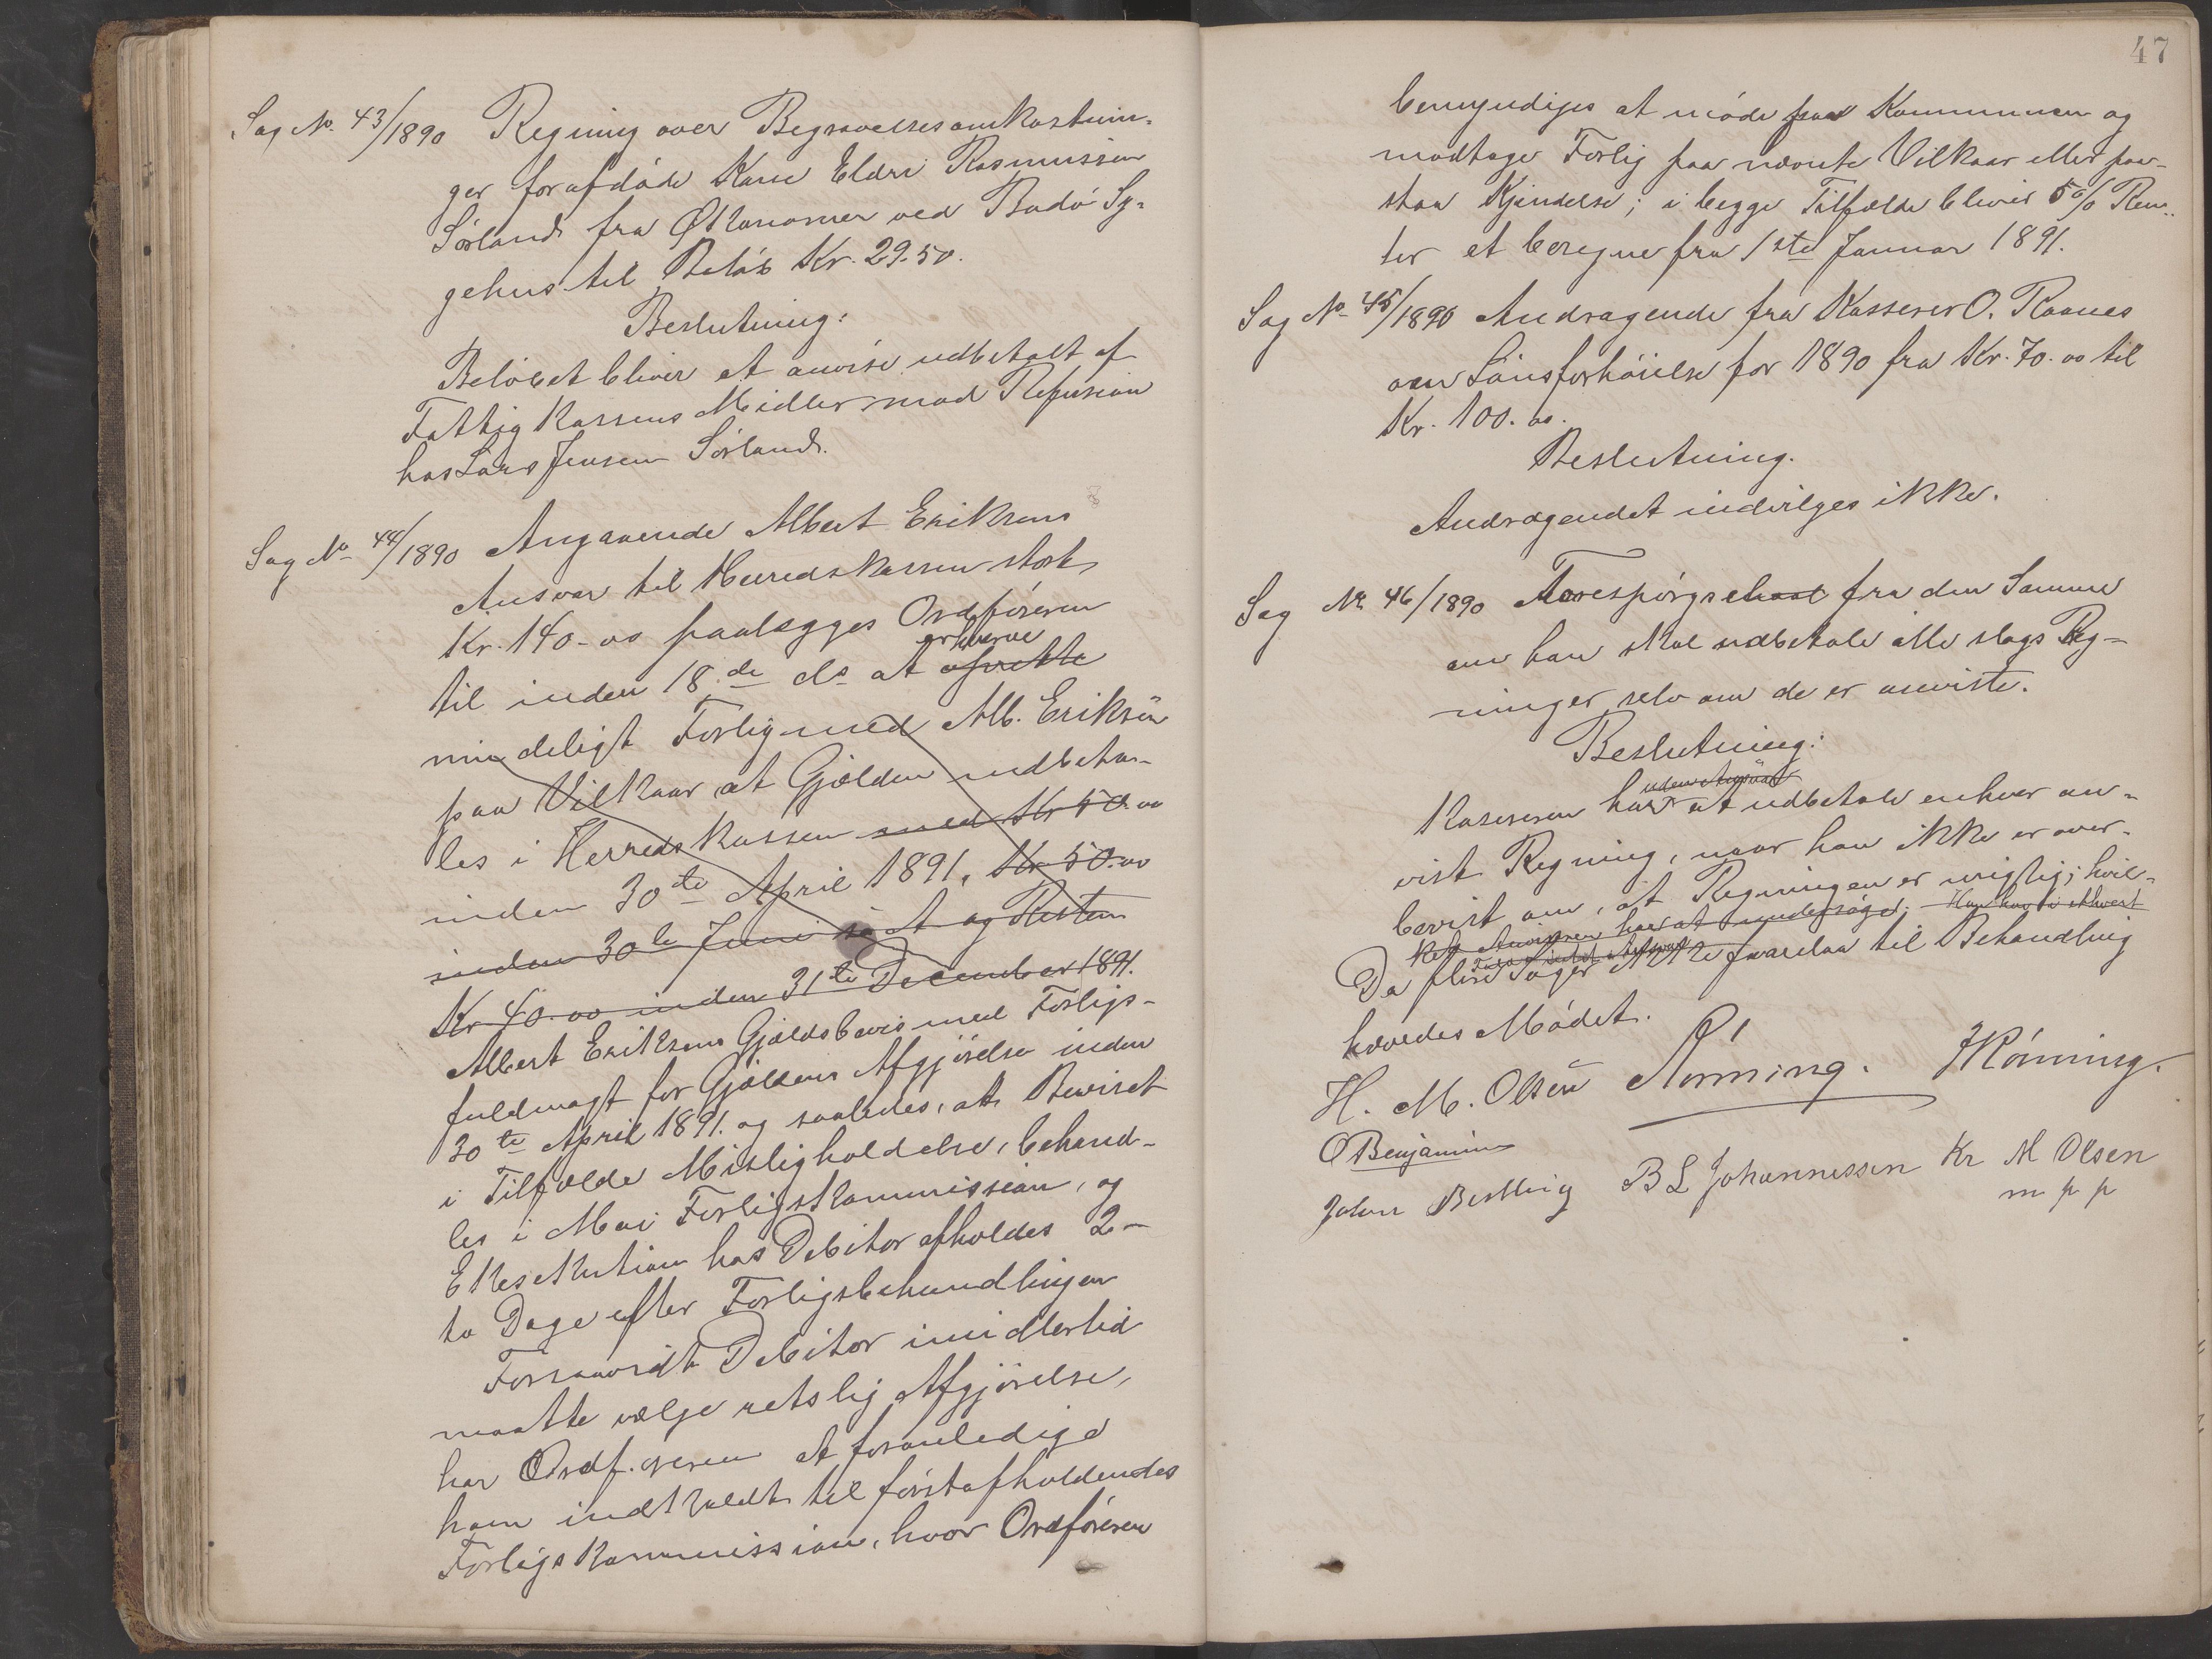 Sag No. 43/1890 Regning over Begravelsesomkostnin-
ger for afdøde Kane Eldri Rasmussen
Sørland fra Økonomen ved Bodø Sy-
gehus til Beløb Kr. 29.50.
Beslutning:
Beløbet bliver at anvise udbetalt af
Fattigkassens Midler mod Refusion
hos Lars Jensen Sørland.
Sag No 44/1890 Angaaende Albert Eriksens
Ansvar til Herredskassen stort
Kr. 140-00 paalægges Ordføreren
erhverve
til inden 18de ds at oprette
mindeligt Forlig med Alb. Eriksen
paa Vilkaar at Gjælden indbeta-
les i Herredskassen med Kr 50.00
inden 30te April 1891, Kr 50.00
inden 30te Juni s A og Resten
Kr 40.00 inden 31te December 1891.
Albert Eriksens Gjældsbevis med Forligs-
fuldmagt for Gjældens Afgjørelse inden
30te April 1891. og saaledes, at Beviset
i Tilfælde Misligholdelse, behand-
les i Mai Forligskommission, og
Eksekution hos Debitor afholdes 2-
to Dage efter Forligsbehandlingen
Forsaavidt Debitor imidlertid
maatte vælge retslig Afgjørelse,
har Ordf.øreren at foranledige
ham indkaldt til førstafholdendes
Forligskommission, hvor Ordføreren
47
bemyndiges at møde for Kommunen og
modtage Forlig paa nævnte Vilkaar eller paa-
staa Kjendelse; i begge Tilfælde bliver 5% Ren-
ter at beregne fra 1ste Januar 1891.
Sag No 45/1890 Andragende fra Kasserer O. Raanes
om Lønsforhøielse for 1890 fra Kr. 70.00 til
Kr. 100.00.
Beslutning.
Andragendet indvilges ikke.
Sag No 46/1890 Forespørgsel fra den Samme
om han skal udbetale alle slags Reg-
ninger, selv om de er anviste.
Beslutning:
uden Ansvar
Kasereren har at udbetale enhver an-
vist Regning, naar han ikke er over-
bevist om, at Regningen er urigtig; hvil-
ket Anviseren har at undersøge. Han har i ethvert
Da flere Sager ikke forelaa til Behandling
hævedes Mødet.
H. M. Olsen Rønning. J Rønning.
O Benjamins
Johan Berthling B L Johannessen Kr M Olsen
m p p